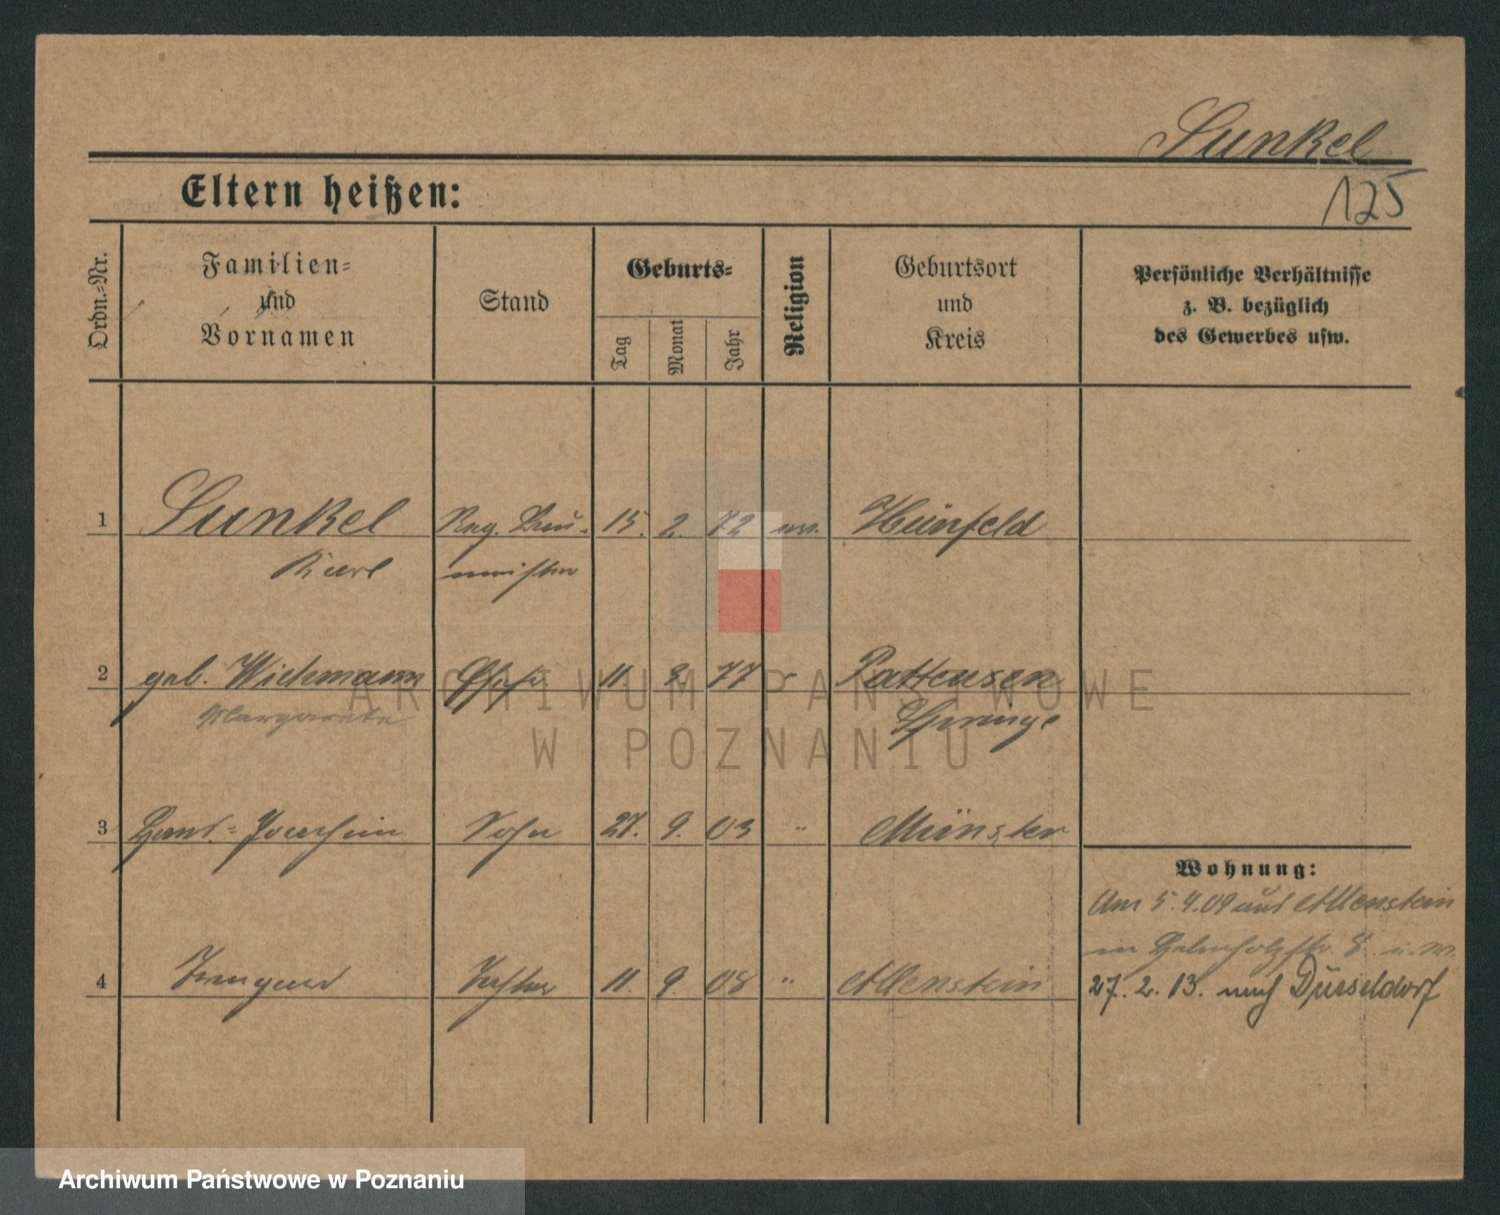 Sunkel
125
Eltern heißen:
Ordn.=Nr.
Familien=
und
Vornamen
Stand
Geburts=
Tag
Monat
Jahr
Religion
Geburtsort
und
Kreis
Persönliche Verhältnisse
z. B. bezüglich
des Gewerbes usw.
1 Sunkel Reg. Bau- 15. 2. 72 ev. Hünfeld
Karl meister
2 geb. Wichmann Ehefr 11. 77 Pattensen
Margarete Springe
3 Hans=Joachim Sohn 27. 9. 03 " Münster
Wohnung:
Am 5.4.09 aus Allenstein
in
4 Irmgard Tochter 11. 9. 08 " Allenstein
27. 2. 13. nach Düsseldorf
ARCHIWUM PAŃSTWOWE
W POZNANIU
Archiwum Państwowe w Poznaniu